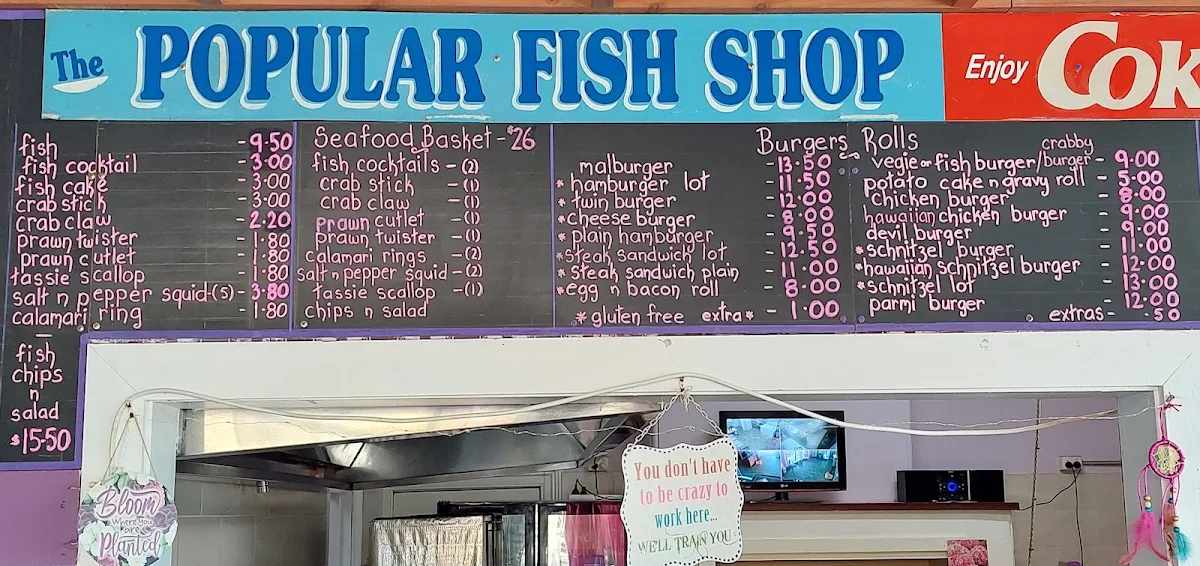 The POPULAR FISH SHOP
Enjoy Cok
fish - 9.50
fish cocktail - 3.00
fish cake - 3.00
crab stick - 3.00
crab claw - 2.20
prawn twister - 1.80
prawn cutlet - 1.80
tassie scallop - 1.80
salt n pepper squid-(5) - 3.80
calamari ring - 1.80
fish
chips
n
salad
$15.50
Seafood Basket - $26
fish cocktails - (2)
crab stick - (1)
crab claw - (1)
prawn cutlet - (1)
prawn twister - (1)
calamari rings - (2)
salt n pepper squid - (2)
tassie scallop - (1)
chips n salad
Burgers Rolls
malburger - 13.50
* hamburger lot - 11.50
* twin burger - 12.00
* cheese burger - 8.00
* plain hamburger - 9.50
* steak sandwich lot - 12.50
* steak sandwich plain - 11.00
* egg n bacon roll - 8.00
* gluten free extra * - 1.00
crabby
vegie or fish burger/burger - 9.00
potato cake n gravy roll - 5.00
chicken burger - 8.00
hawaiian chicken burger - 9.00
devil burger - 9.00
* schnitzel burger - 11.00
* hawaiian schnitzel burger - 12.00
* schnitzel lot - 13.00
parmi burger - 12.00
extras - .50
Bloom
where you
are
Planted
You don't have
to be crazy to
work here...
WE'LL TRAIN YOU